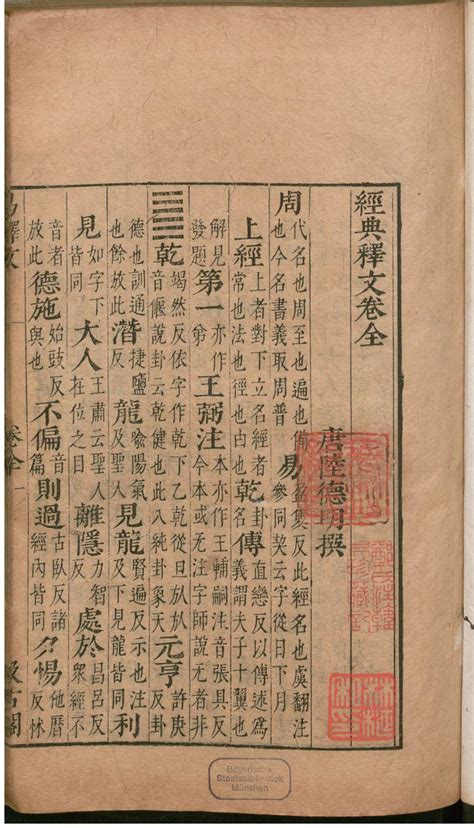 經典釋文卷全
唐陸德明撰
周代名也周至也遍也備也今名書義取周普易盈隻反此經名也虞翻注參同契云字從日下月
上經上者對下立名經者常也法也徑也由也乾卦名傳直戀反以傳述爲義謂夫子十翼也
解見發題第一亦作弟王弼注亦作王輔嗣注音張具反今本或无注字師說无者非
䷀乾竭然反依字作乾下乙乾從旦㫃㫃音偃說卦云乾健也此八純卦象天元亨許庚反卦
德也訓通也餘放此潛捷鹽反龍喻陽氣及聖人見龍賢遍反示也注及下見龍皆同利
見如字下皆同大人王肅云聖人在位之目離隱力智反處於昌呂反衆經不
音者放此德施始豉反與也不偏音篇則過古臥反諸經內皆同夕惕他曆反怵
易釋文 卷全 一 汲古閣
Bayerische
Staatsbibliothek
München